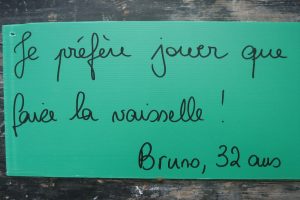 Je préfère jouer que
faire la vaisselle !
Bruno, 32 ans